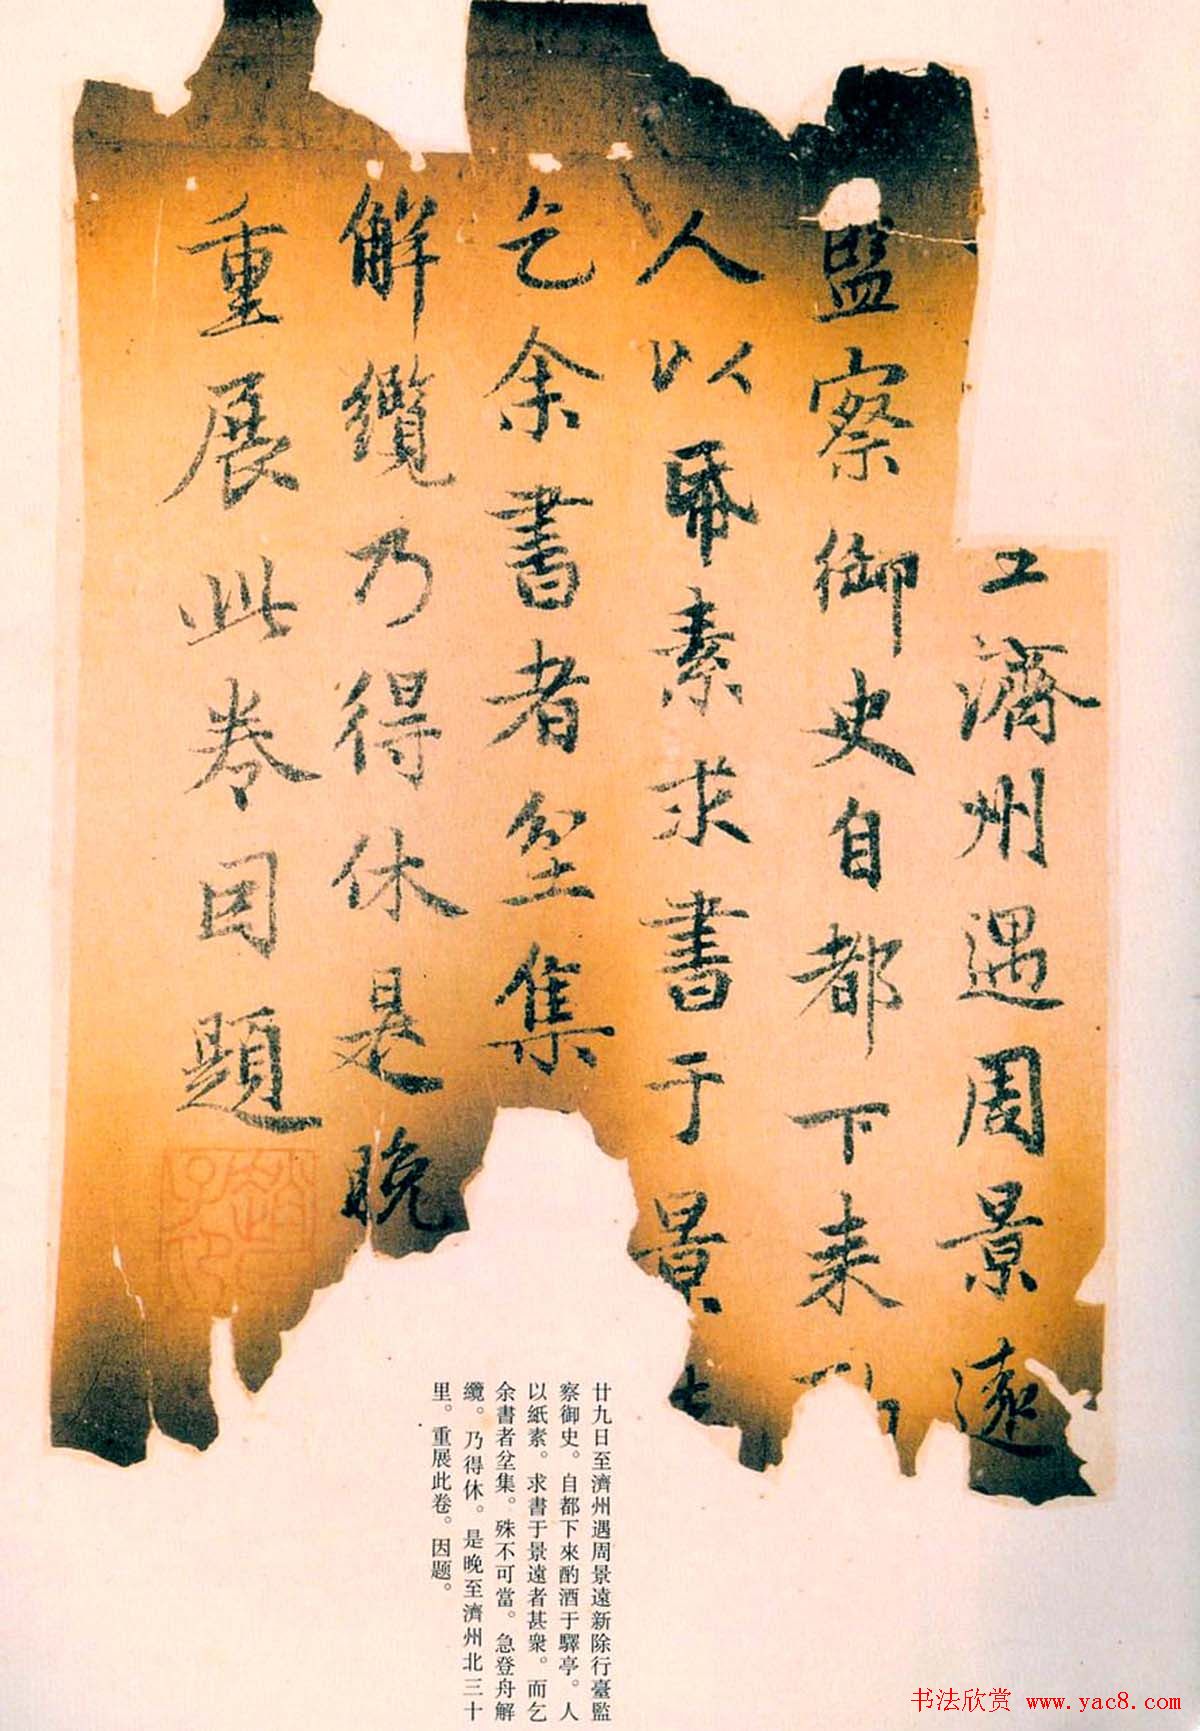 濟州遇周景遠
監察御史自都下来
人以帋素求書于景
乞余書者坌集
解纜乃得休是晚
重展此卷因題
廿九日至濟州遇周景遠新除行臺監
察御史。自都下來酌酒于驛亭。人
以紙素。求書于景遠者甚衆。而乞
余書者坌集。殊不可當。急登舟解
纜。乃得休。是晚至濟州北三十
里。重展此卷。因题。
书法欣赏 www.yac8.com